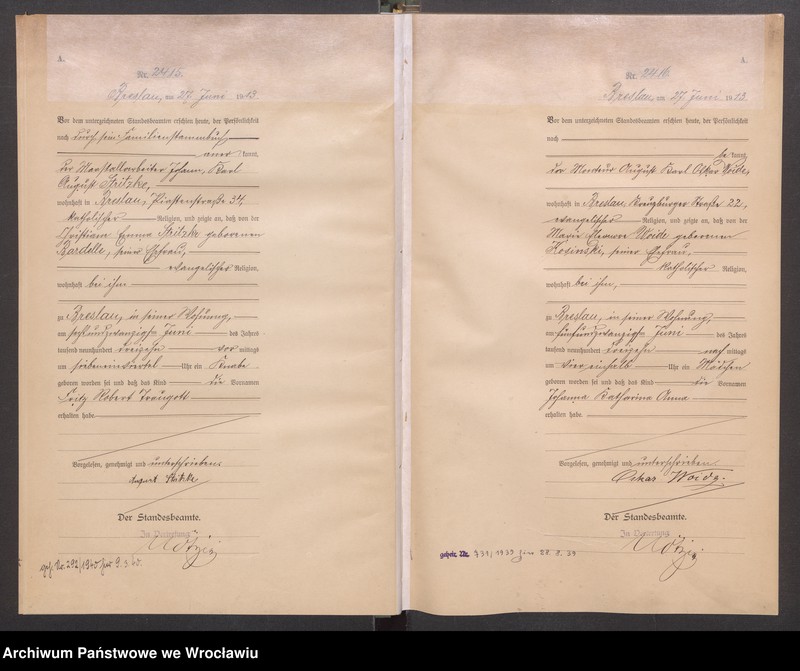 A.
Nr. 2415.
Breslau, am 27. Juni 1913.
Vor dem unterzeichneten Standesbeamten erschien heute, der Persönlichkeit
nach durch sein Familienstammbuch
aner kannt,
der Marstallarbeiter Johann, Karl
August Stritzke,
wohnhaft in Breslau, straße 54,
katholischer Religion, und zeigte an, daß von der
Christiane Emma Stritzke geborenen
Bardelle, seiner Ehefrau,
evangelischer Religion,
wohnhaft bei ihm
zu Breslau, in seiner Wohnung,
am sechsundzwanzigsten Juni des Jahres
tausend neunhundert dreizehn vor mittags
um siebeneinviertel Uhr ein Knabe
geboren worden sei und daß das Kind die Vornamen
Fritz Robert Traugott
erhalten habe.
Vorgelesen, genehmigt und unterschrieben.
August Stritzke
Der Standesbeamte.
In Vertretung
Nr. 292/1940 9.3.40.
A.
Nr. 2416.
Breslau, am 27. Juni 1913.
Vor dem unterzeichneten Standesbeamten erschien heute, der Persönlichkeit
nach
be kannt,
der Monteur August Karl Oskar Woide,
wohnhaft in Breslau, Kreuzburger Straße 22,
evangelischer Religion, und zeigte an, daß von der
Marie Woide geborenen
Kosinski, seiner Ehefrau,
katholischer Religion,
wohnhaft bei ihm,
zu Breslau, in seiner Wohnung,
am fünfundzwanzigsten Juni des Jahres
tausend neunhundert dreizehn nach mittags
um viereinhalb Uhr ein Mädchen
geboren worden sei und daß das Kind die Vornamen
Johanna Katharina Anna
erhalten habe.
Vorgelesen, genehmigt und unterschrieben.
Oskar Woide.
Der Standesbeamte.
In Vertretung
geheir. Nr. 731/1939 39
Archiwum Państwowe we Wrocławiu